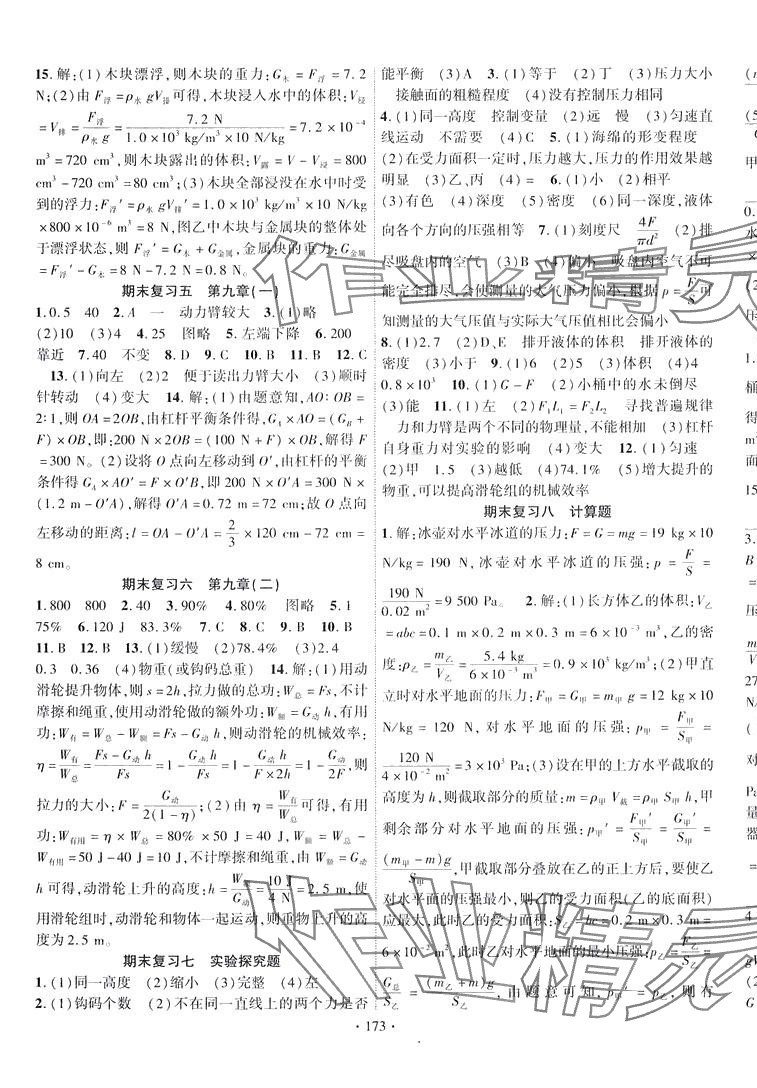 15.解:(1)木块漂浮,则木块的重力:G木=F浮=7.2
N;(2)由F浮=ρ水 gV排可得,木块浸入水中的体积:V浸
=V排=F浮/ρ水 g=7.2 N/1.0×10³ kg/m³×10 N/kg=7.2×10⁻⁴
m³=720 cm³,则木块露出的体积:V露=V-V浸=800
cm³-720 cm³=80 cm³;(3)木块全部浸没在水中时受
到的浮力:F浮′=ρ水 gV排′=1.0×10³ kg/m³×10 N/kg
×800×10⁻⁶ m³=8 N,图乙中木块与金属块的整体处
于漂浮状态,则F浮′=G木+G金属,金属块的重力:G金属
=F浮′-G木=8 N-7.2 N=0.8 N。
期末复习五 第九章(一)
1.0.5 40 2.A 一 动力臂较大 3.(1)略
(2)10 (3)4 4.25 图略 5.左端下降 6.200
靠近 7.40 不变 8.D 9.C 10.B 11.B 12.C
13.(1)向左 (2)2 便于读出力臂大小 (3)顺时
针转动 (4)变大 14.解:(1)由题意知,AO∶OB=
2∶1,则OA=2OB,由杠杆平衡条件得,GA×AO=(GB+
F)×OB,即:200 N×2OB=(100 N+F)×OB,解得 F
=300 N。(2)设将 O 点向左移动到 O′,由杠杆的平衡
条件得 GA×AO′=F×O′B,即 200 N×O′A=300 N×
(1.2 m-O′A),解得:O′A=0.72 m=72 cm;故 O 点向
左移动的距离:l=OA-O′A=2/3×120 cm-72 cm=
8 cm。
期末复习六 第九章(二)
1.800 800 2.40 3.90% 4.80% 图略 5.1
75% 6.120 J 83.3% 7.C 8.D 9.B 10.B
11.B 12.B 13.(1)缓慢 (2)78.4% (3)2.4
0.3 0.36 (4)物重(或钩码总重) 14.解:(1)用动
滑轮提升物体,则 s=2h,拉力做的总功:W总=Fs,不计
摩擦和绳重,使用动滑轮做的额外功:W额=G动 h,有用
功:W有=W总-W额=Fs-G动 h,则动滑轮的机械效率:
η=W有/W总=Fs-G动 h/Fs=1-G动 h/Fs=1-G动 h/F×2h=1-G动/2F,则
拉力的大小:F=G动/2(1-η);(2)由 η=W有/W总可得,有用
功:W有用=η×W总=80%×50 J=40 J,W额=W总-
W有用=50 J-40 J=10 J,不计摩擦和绳重,由 W额=G动
h 可得,动滑轮上升的高度:h=W额/G动=10 J/4 N=2.5 m,使
用滑轮组时,动滑轮和物体一起运动,则重物上升的高
度为2.5 m。
期末复习七 实验探究题
1.(1)同一高度 (2)缩小 (3)完整 (4)左
2.(1)钩码个数 (2)不在同一直线上的两个力是否
能平衡 (3)A 3.(1)等于 (2)丁 (3)压力大小
接触面的粗糙程度 (4)没有控制压力相同
4.(1)同一高度 控制变量 (2)慢 远 (3)匀速直
线运动 不需要 (4)C 5.(1)海绵的形变程度
(2)在受力面积一定时,压力越大,压力的作用效果越
明显 (3)乙、丙 (4)= 6.(1)小 (2)相平
(3)有色 (4)深度 (5)密度 (6)同一深度,液体
向各个方向的压强相等 7.(1)刻度尺 4F/πd² (2)排
尽吸盘内的空气 (3)B (4)偏小 吸盘内空气不可
能完全排尽,会使测量的大气压力偏小,根据 p=F/S可
知测量的大气压值与实际大气压值相比会偏小
8.(1)2.7 (2)D、E 排开液体的体积 排开液体的
密度 (3)小于 9.(1)6 (2)5 (3)体积 (4)4
0.8×10³ 10.(1)G-F (2)小桶中的水未倒尽
(3)能 11.(1)左 (2)F₁L₁=F₂L₂ 寻找普遍规律
力和力臂是两个不同的物理量,不能相加 (3)杠杆
自身重力对实验的影响 (4)变大 12.(1)匀速
(2)甲 1.5 (3)越低 (4)74.1% (5)增大提升的
物重,可以提高滑轮组的机械效率
期末复习八 计算题
1.解:冰壶对水平冰道的压力:F=G=mg=19 kg×10
N/kg=190 N,冰壶对水平冰道的压强:p=F/S=
190 N/0.02 m²=9 500 Pa。 2.解:(1)长方体乙的体积:V乙
=abc=0.1 m×0.2 m×0.3 m=6×10⁻³ m³,乙的密
度:ρ乙=m乙/V乙=5.4 kg/6×10⁻³ m³=0.9×10³ kg/m³;(2)甲直
立时对水平地面的压力:F甲=G甲=m甲 g=12 kg×10
N/kg=120 N,对水平地面的压强:p甲=F甲/S甲=
120 N/4×10⁻² m²=3×10³ Pa;(3)设在甲的上方水平截取的
高度为 h,则截取部分的质量:m=ρ甲 V截=ρ甲 S甲 h,甲
剩余部分对水平地面的压强:p甲′=F甲′/S甲=G甲′/S甲=
(m甲-m)g/S甲,甲截取部分叠放在乙的正上方后,要使乙
对水平地面的压强最小,则乙的受力面积(乙的底面积)
应最大,此时乙的受力面积:S乙=bc=0.2 m×0.3 m=
6×10⁻² m²,此时乙对水平地面的最小压强:p乙=F乙/S乙=
G总/S乙=(m乙+m)g/S乙,由题意可知,p甲′=p乙,则有
· 173 ·
作业精灵
作业精灵